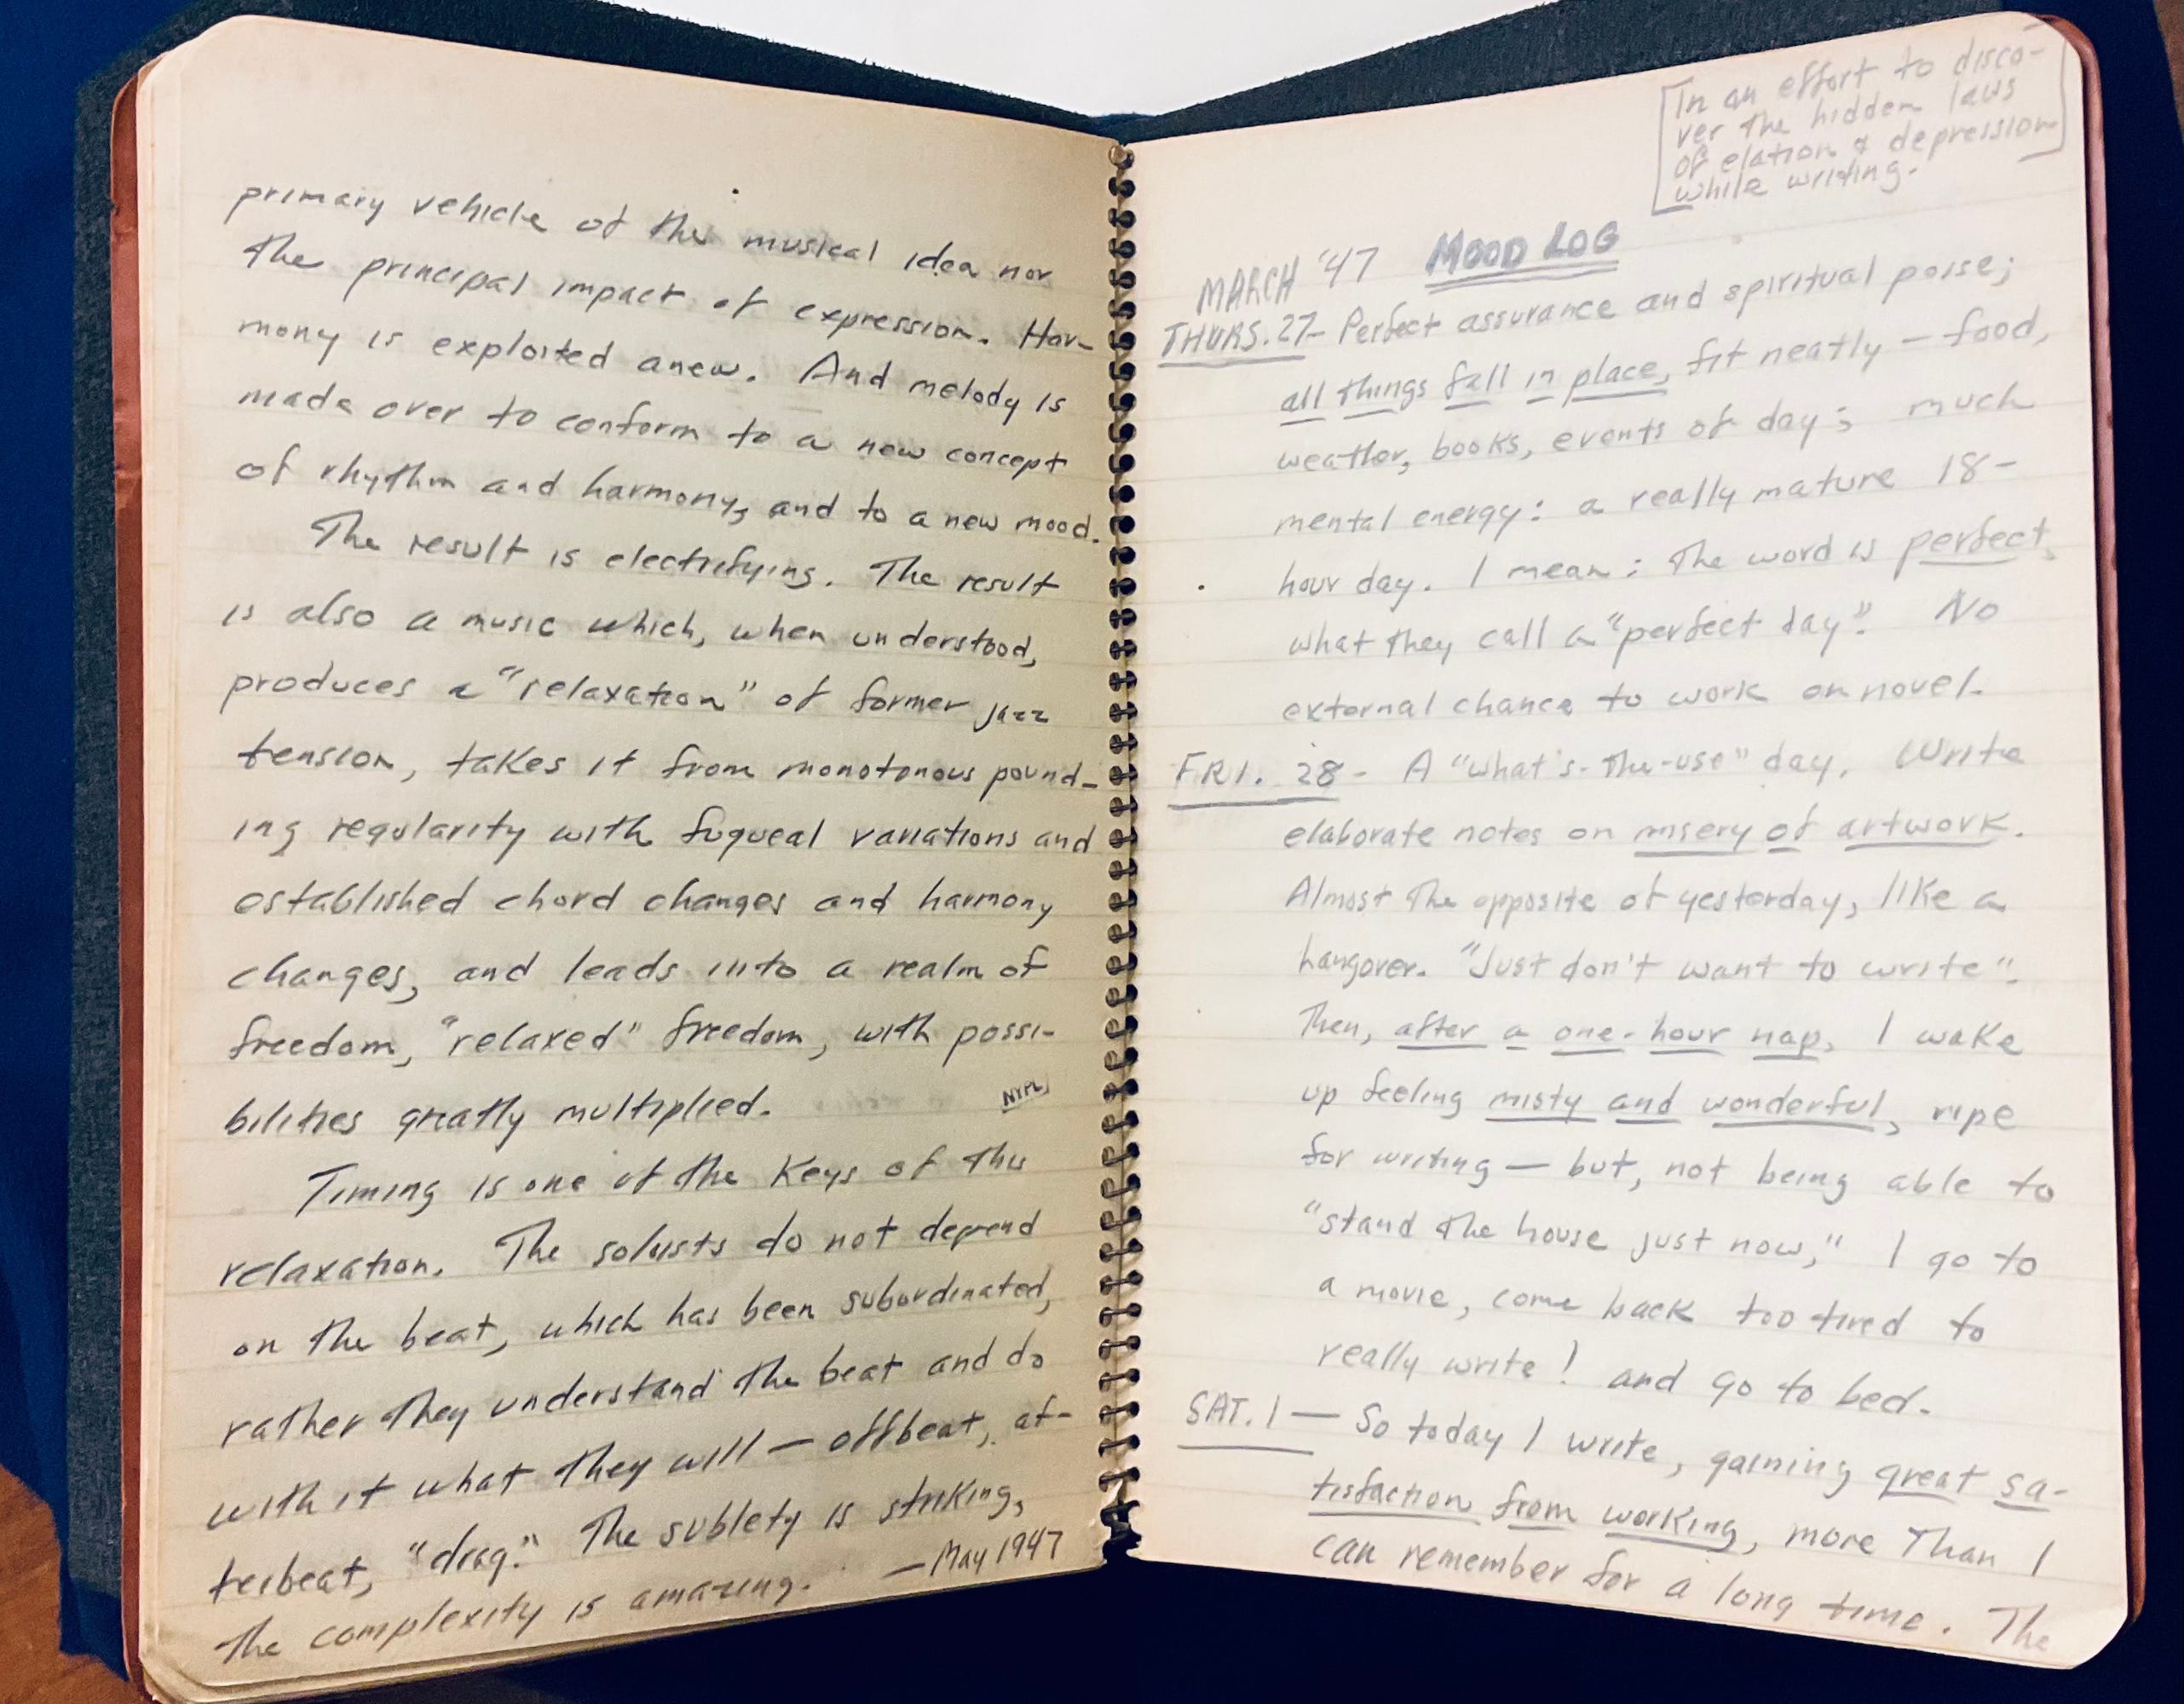 primary vehicle of the musical idea nor
the principal impact of expression. Har-
mony is exploited anew. And melody is
made over to conform to a new concept
of rhythm and harmony, and to a new mood.
The result is electrifying. The result
is also a music which, when understood,
produces a "relaxation" of former jazz
tension, takes it from monotonous pound-
ing regularity with fugueal variations and
established chord changes and harmony
changes, and leads into a realm of
freedom, "relaxed" freedom, with possi-
bilities greatly multiplied.
NYPL
Timing is one of the Keys of this
relaxation. The soloists do not depend
on the beat, which has been subordinated,
rather they understand the beat and do
with it what they will — offbeat, af-
terbeat, "drag." The sublety is striking,
The complexity is amazing. — May 1947
[In an effort to disco-
ver the hidden laws
of elation & depression
while writing.]
MARCH '47 MOOD LOG
THURS. 27 - Perfect assurance and spiritual poise;
all things fall in place, fit neatly — food,
weather, books, events of day; much
mental energy: a really mature 18-
hour day. I mean: The word is perfect,
what they call a "perfect day". No
external chance to work on novel.
FRI. 28 - A "what's-the-use" day. Write
elaborate notes on misery of artwork.
Almost the opposite of yesterday, like a
hangover. "Just don't want to write".
Then, after a one-hour nap, I wake
up feeling misty and wonderful, ripe
for writing — but, not being able to
"stand the house just now," I go to
a movie, come back too tired to
really write! and go to bed.
SAT. 1 — So today I write, gaining great sa-
tisfaction from working, more than I
can remember for a long time. The